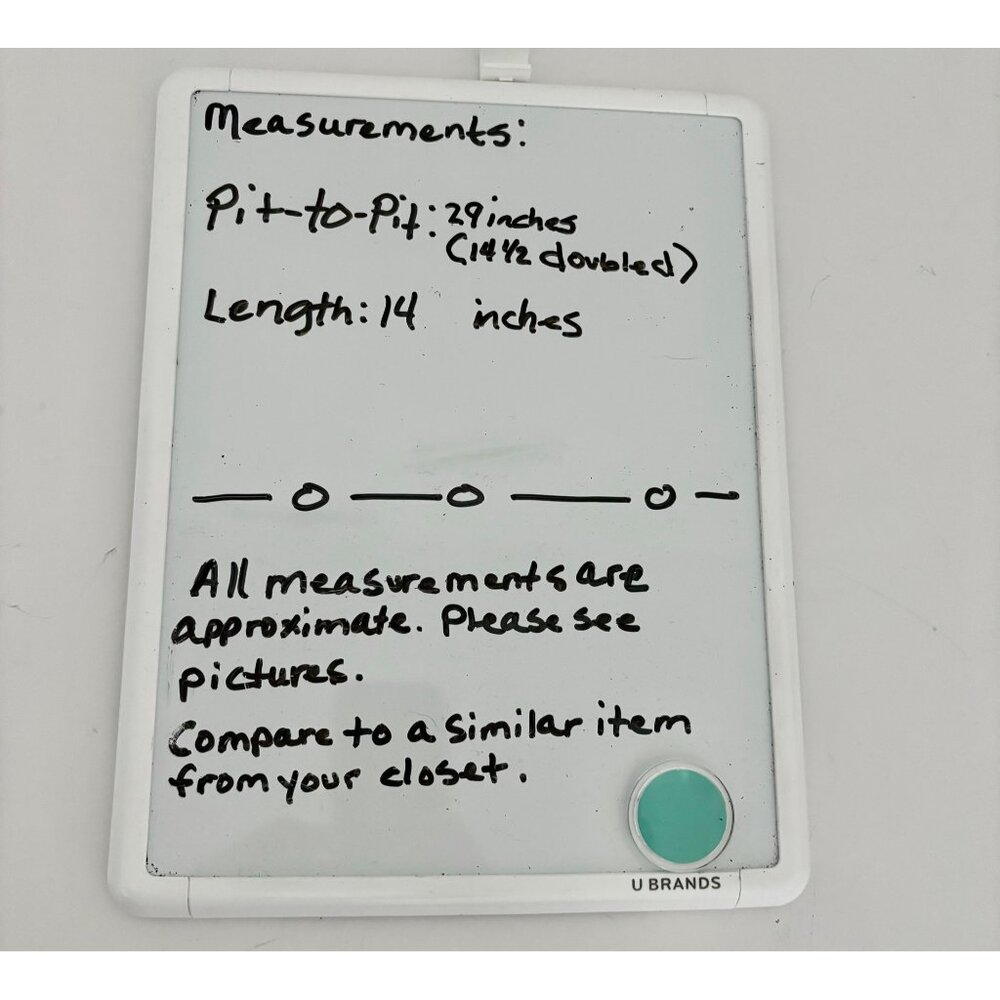 Measurements:
Pit-to-Pit: 29 inches
(14 1/2 doubled)
Length: 14 inches
All measurements are
approximate. Please see
pictures.
Compare to a similar item
from your closet.
U BRANDS